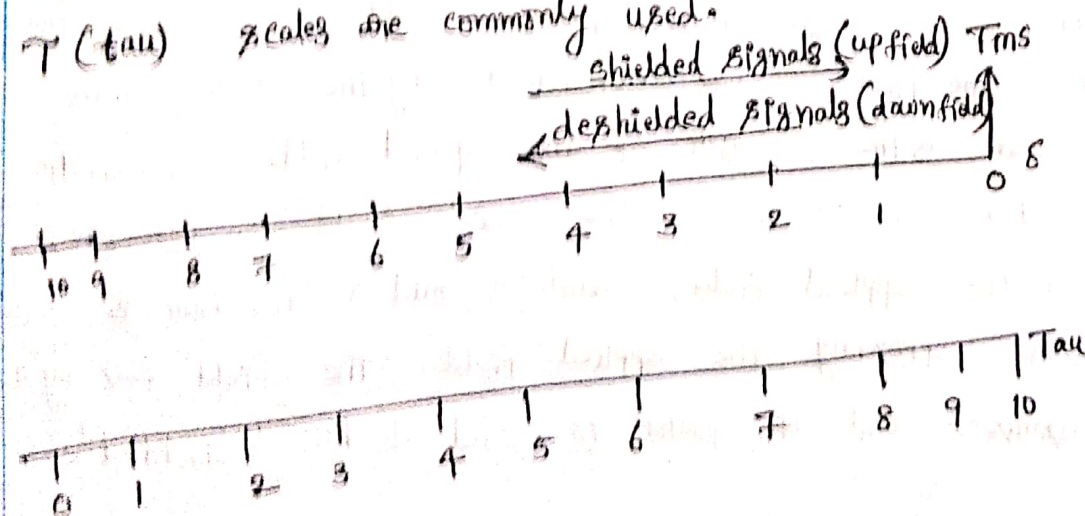 T (tau) scales are commonly used.
shielded signals (upfield) Tms
deshielded signals (downfield)
δ
10 9 8 7 6 5 4 3 2 1 0
Tau
0 1 2 3 4 5 6 7 8 9 10